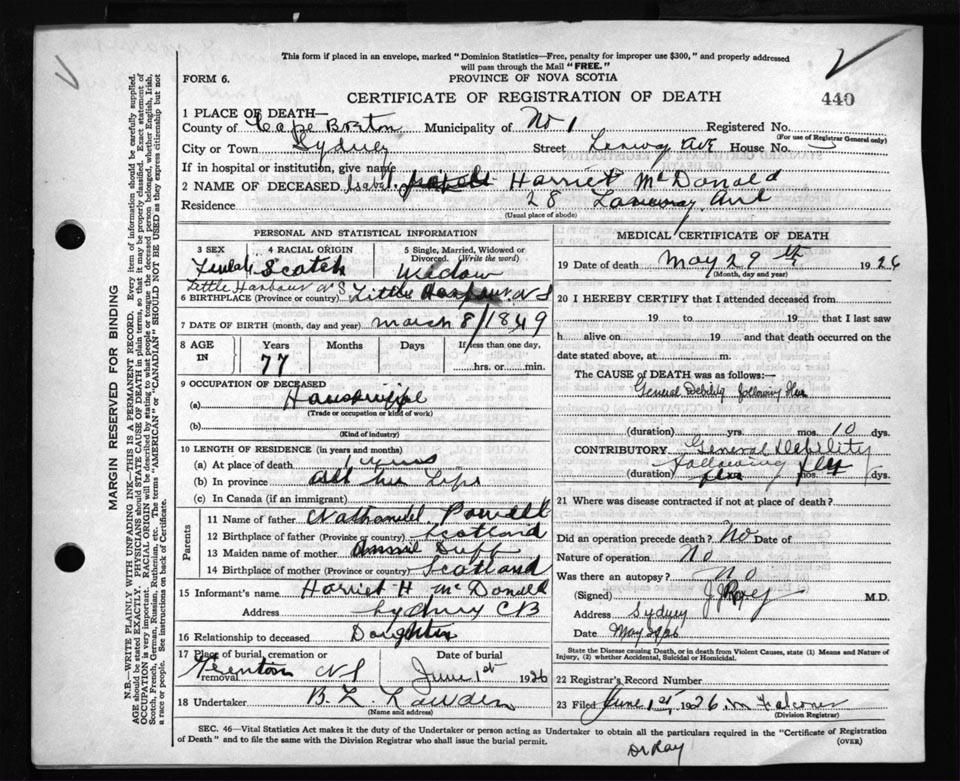 This form if placed in an envelope, marked "Dominion Statistics—Free, penalty for improper use $300," and properly addressed
will pass through the Mail "FREE."
FORM 6.
PROVINCE OF NOVA SCOTIA
CERTIFICATE OF REGISTRATION OF DEATH
440
1 PLACE OF DEATH—
County of Cape Breton Municipality of No 1 Registered No.
(For use of Registrar General only)
City or Town Sydney Street Ave House No.
If in hospital or institution, give name
2 NAME OF DECEASED Isabel Harriet McDonald
Residence 28
(Usual place of abode)
PERSONAL AND STATISTICAL INFORMATION
3 SEX 4 RACIAL ORIGIN 5 Single, Married, Widowed or Divorced. (Write the word)
Female Scotch Widow
Little Harbour N S
6 BIRTHPLACE (Province or country) Little Harbour N S
7 DATE OF BIRTH (month, day and year) March 8/1849
8 AGE IN Years Months Days If less than one day,
77 hrs. or min.
9 OCCUPATION OF DECEASED
(a) Housewife
(Trade or occupation or kind of work)
(b)
(Kind of industry)
10 LENGTH OF RESIDENCE (in years and months)
(a) At place of death
(b) In province All her Life
(c) In Canada (if an immigrant)
Parents
11 Name of father Nathaniel Powell
12 Birthplace of father (Province or country) Scotland
13 Maiden name of mother Duff
14 Birthplace of mother (Province or country) Scotland
15 Informant's name Harriet H McDonald
Address Sydney CB
16 Relationship to deceased Daughter
17 Place of burial, cremation or removal Date of burial
Trenton N S June 1st 1926
18 Undertaker B. L
(Name and address)
MEDICAL CERTIFICATE OF DEATH
19 Date of death May 29th 1926
(Month, day and year)
20 I HEREBY CERTIFY that I attended deceased from
19 to 19 that I last saw
h alive on 19 and that death occurred on the
date stated above, at m.
The CAUSE OF DEATH was as follows:—
General Debility following Flu
(duration) yrs. mos. 10 dys.
CONTRIBUTORY General Debility
following Flu
(duration) yrs. mos. dys.
21 Where was disease contracted if not at place of death?
Did an operation precede death? No Date of
Nature of operation No
Was there an autopsy? No
(Signed) M.D.
Address Sydney
Date May 29/26
State the Disease causing Death, or in death from Violent Causes, state (1) Means and Nature of
Injury, (2) whether Accidental, Suicidal or Homicidal.
22 Registrar's Record Number
23 Filed June 1st, 1926 Falconer
(Division Registrar)
SEC. 46—Vital Statistics Act makes it the duty of the Undertaker or person acting as Undertaker to obtain all the particulars required in the "Certificate of Registration
of Death" and to file the same with the Division Registrar who shall issue the burial permit. (OVER)
Dr Ray
MARGIN RESERVED FOR BINDING
N.B.—WRITE PLAINLY WITH UNFADING INK—THIS IS A PERMANENT RECORD. Every item of information should be carefully supplied.
AGE should be stated EXACTLY. PHYSICIANS should STATE CAUSE OF DEATH in plain terms, so that it may be properly classified. Exact statement of
OCCUPATION is very important. RACIAL ORIGIN will be described by stating to what people or tongue the deceased person belonged, whether English, Irish,
Scotch, French, German, Russian, Ruthenian, etc. The terms "AMERICAN" or "CANADIAN" SHOULD NOT BE USED as they express citizenship but not
a race or people. See instructions on back of Certificate.